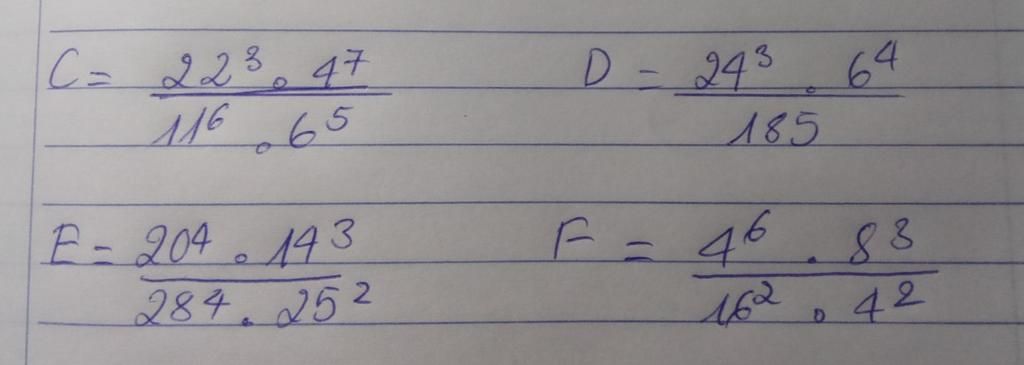 C = 22³ . 4⁷ / 11⁶ . 6⁵
D = 24³ . 6⁴ / 185
E = 20⁴ . 14³ / 28⁴ . 25²
F = 4⁶ . 8³ / 16² . 4²